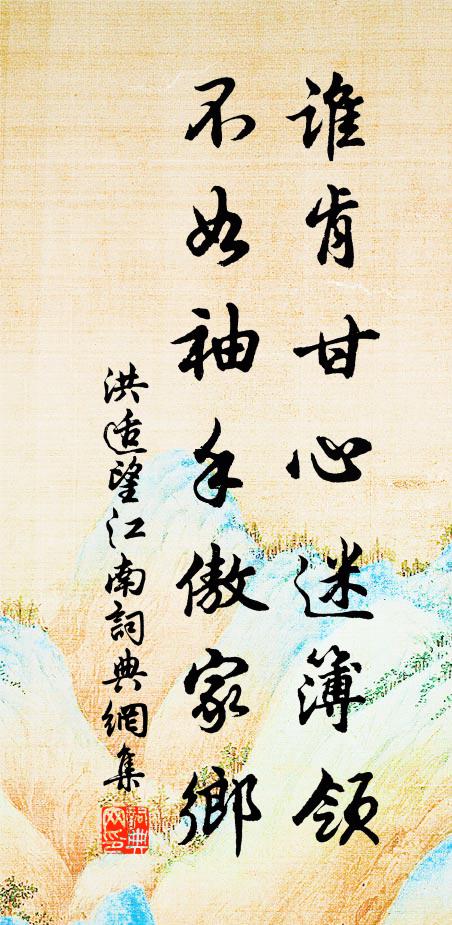 誰肯甘心迷簿領
不如袖手傲家鄉
洪适望江南詞典網集
詞典網印